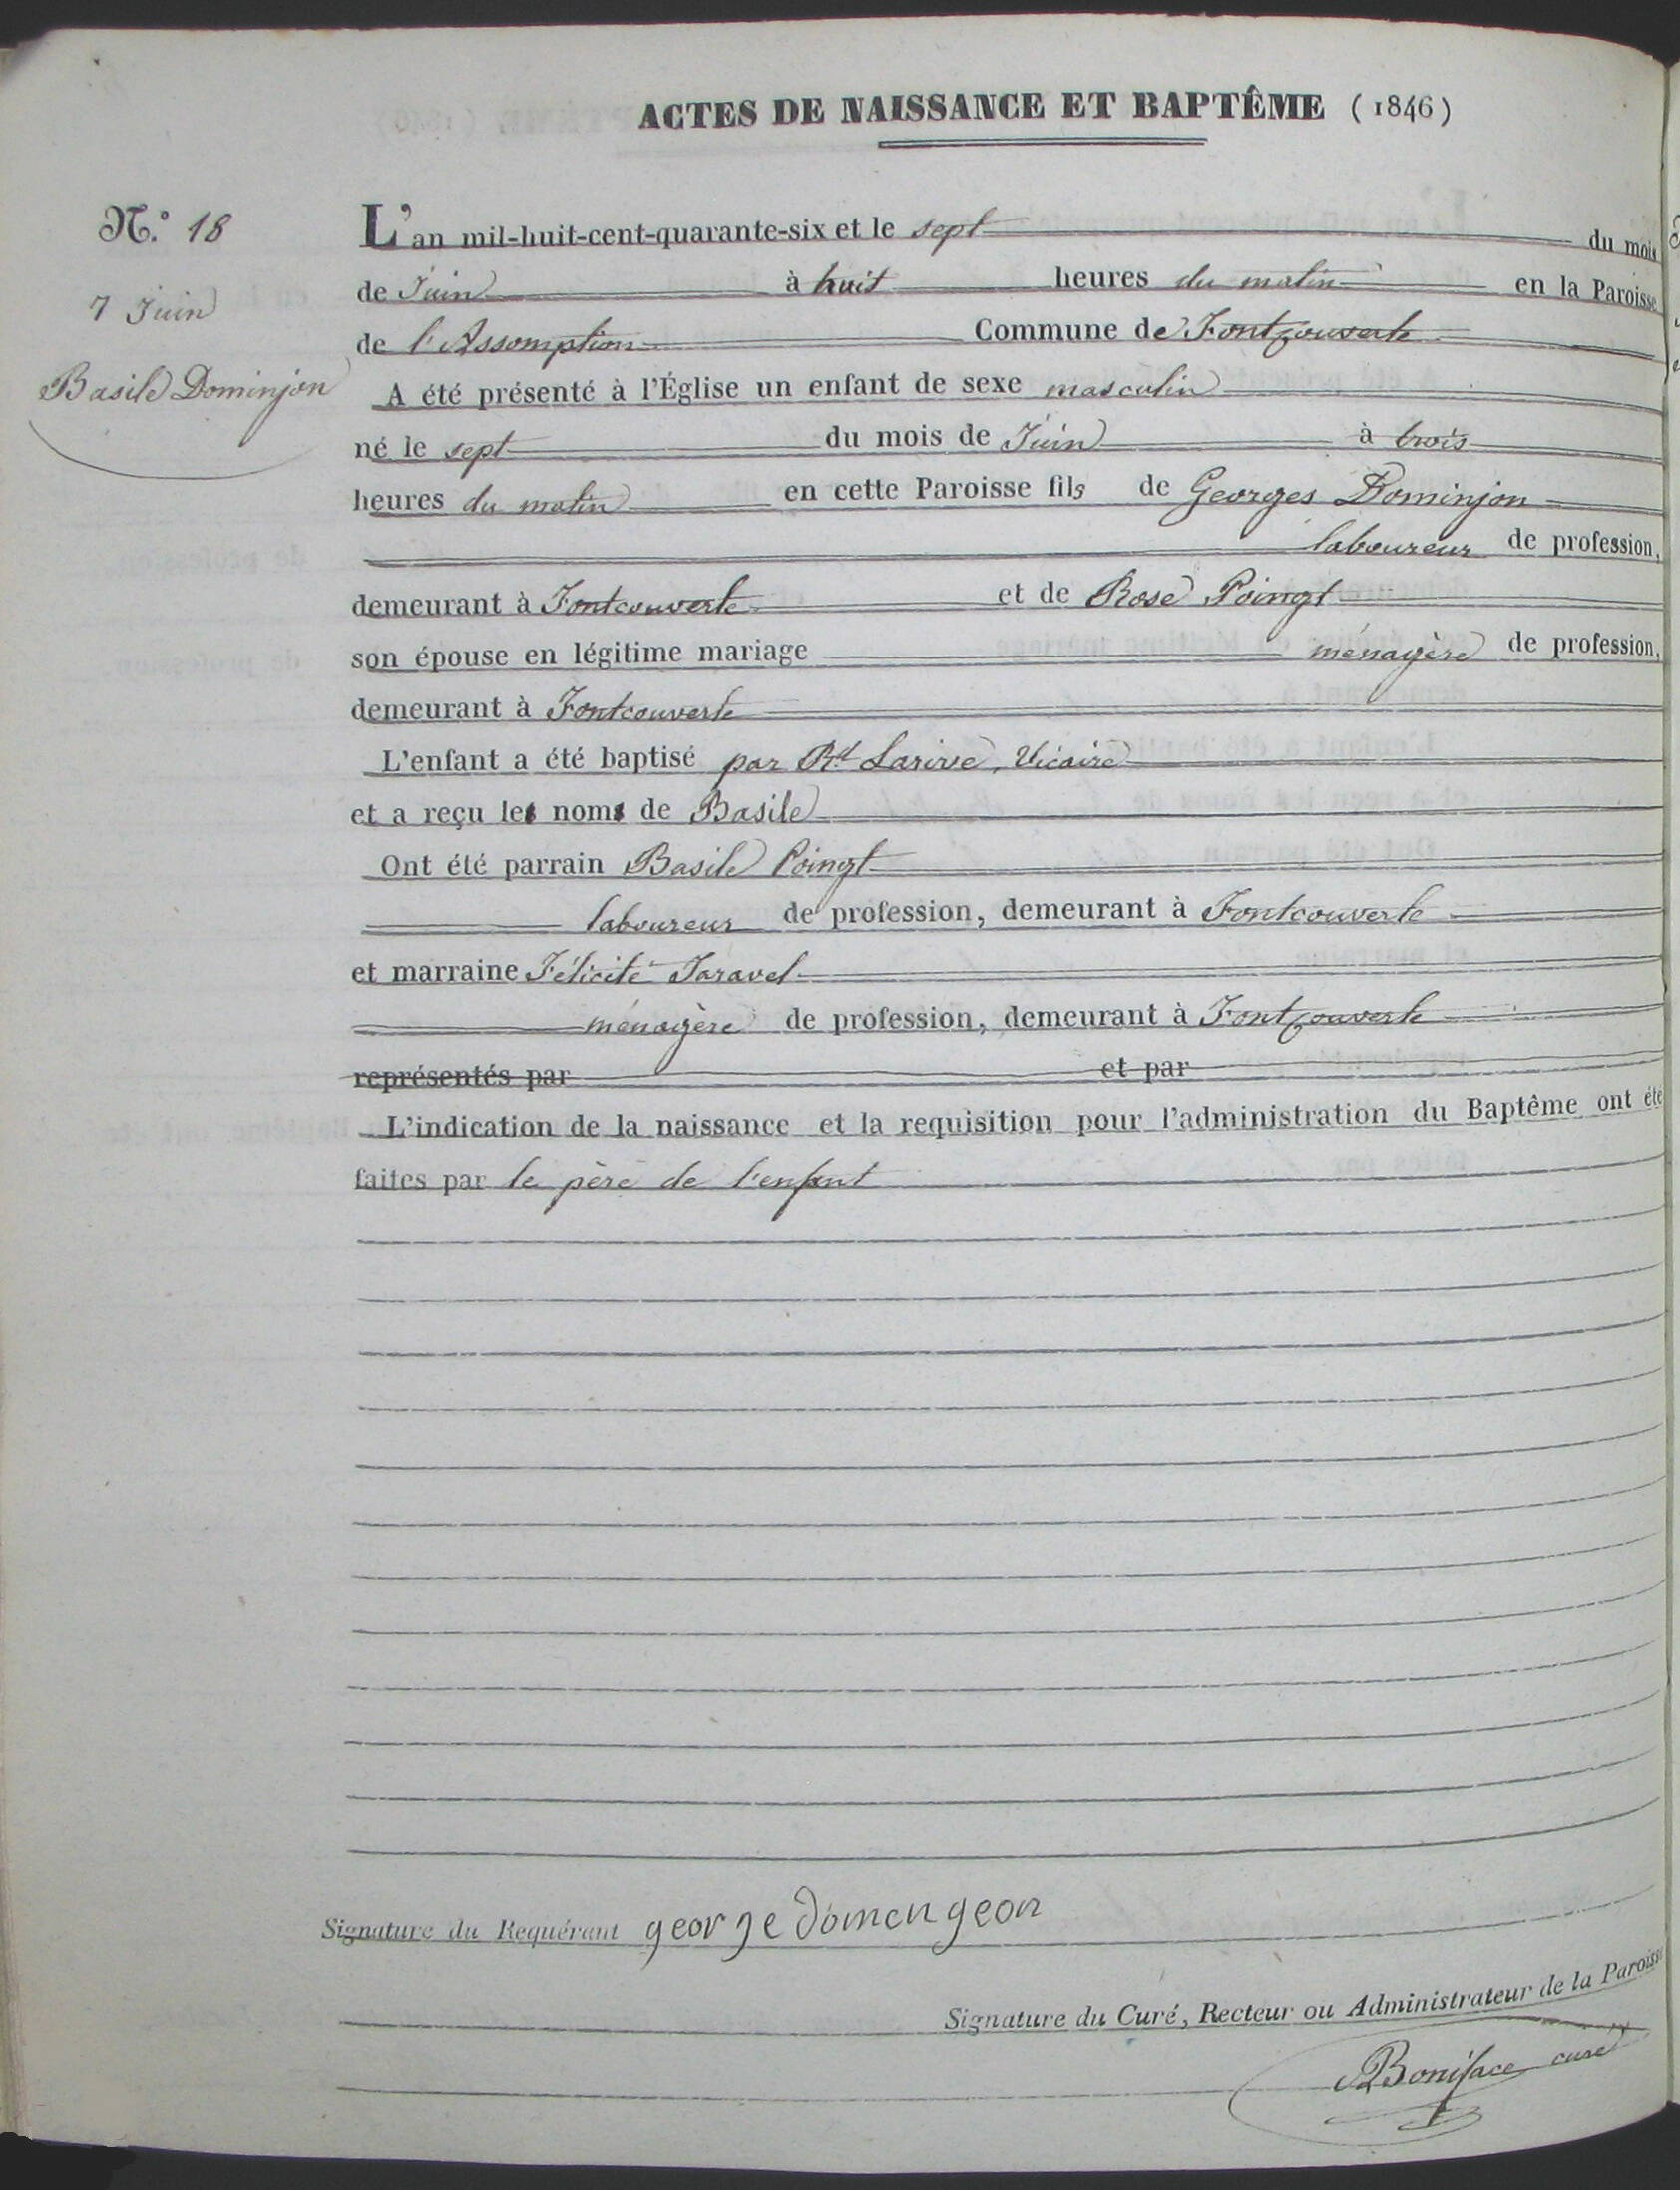 ACTES DE NAISSANCE ET BAPTÊME (1846)
N.° 18
7 Juin
Basile Dominjon
L'an mil-huit-cent-quarante-six et le sept du mois
de Juin à huit heures du matin en la Paroisse
de l'Assomption Commune de Fontcouverte
A été présenté à l'Église un enfant de sexe masculin
né le sept du mois de Juin à trois
heures du matin en cette Paroisse fils de Georges Dominjon
laboureur de profession,
demeurant à Fontcouverte et de Rose Poingt
son épouse en légitime mariage ménagère de profession,
demeurant à Fontcouverte
L'enfant a été baptisé par Rd Larive, Vicaire
et a reçu les noms de Basile
Ont été parrain Basile Poingt
laboureur de profession, demeurant à Fontcouverte
et marraine Félicité Jaravel
ménagère de profession, demeurant à Fontcouverte
représentés par et par
L'indication de la naissance et la requisition pour l'administration du Baptême ont été
faites par le père de l'enfant
Signature du Requérant george domengeon
Signature du Curé, Recteur ou Administrateur de la Paroisse
Boniface curé